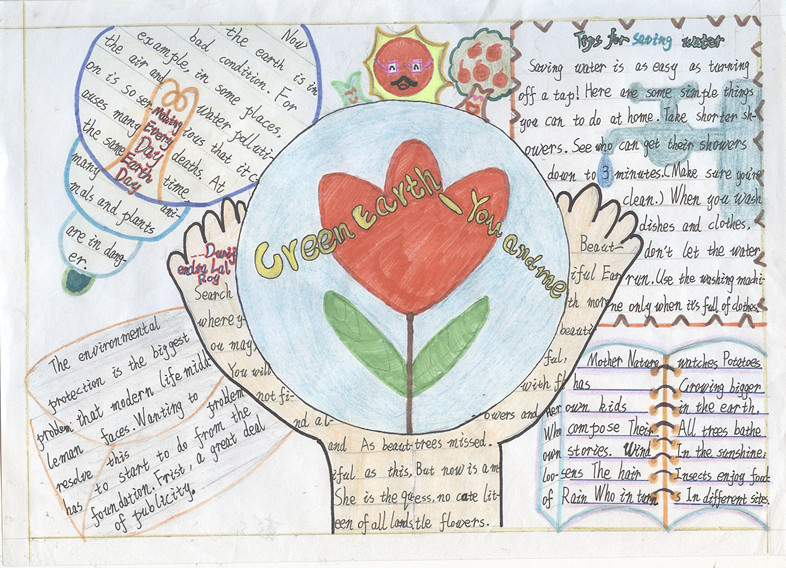 Now
the earth is in
bad condition. For
example, in some places,
the air and water polluti-
on is so ser- ious that it c-
auses many deaths. At
the same time,
many ani-
mals and plants
are in dang-
er.
Making
Every
Day
Earth
Day
Tips for saving water
Saving water is as easy as turning
off a tap! Here are some simple things
you can to do at home. Take shorter sh-
owers. See who can get their showers
down to 3 minutes.(Make sure you're
clean.) When you wash
dishes and clothes,
don't let the water
run. Use the washing machi-
ne only when it's full of clothes.
Green Earth - You and me
--Dwij
endra Lal
Roy
Search
where y-
ou may
You will
not fi-
nd al-
Beaut-
iful Ear
th more
beauti
ful,
with fl
owers and
and As beaut-trees missed.
iful as this, But now is a m
She is the quess, no cate lit-
een of all lands, tle flowers.
The environmental
protection is the biggest
problem that modern life middl
leman faces. Wanting to problem
resolve this
has to start to do from the
foundation. Frist, a great deal
of publicity.
Mother Nature
has
her own kids
Who compose Their
own stories. Wind
Loo-sens The hair
of Rain Who in turn
watches Potatoes
Growing bigger
in the earth.
All trees bathe
In the sunshine;
Insects enjoy food
s In different sites